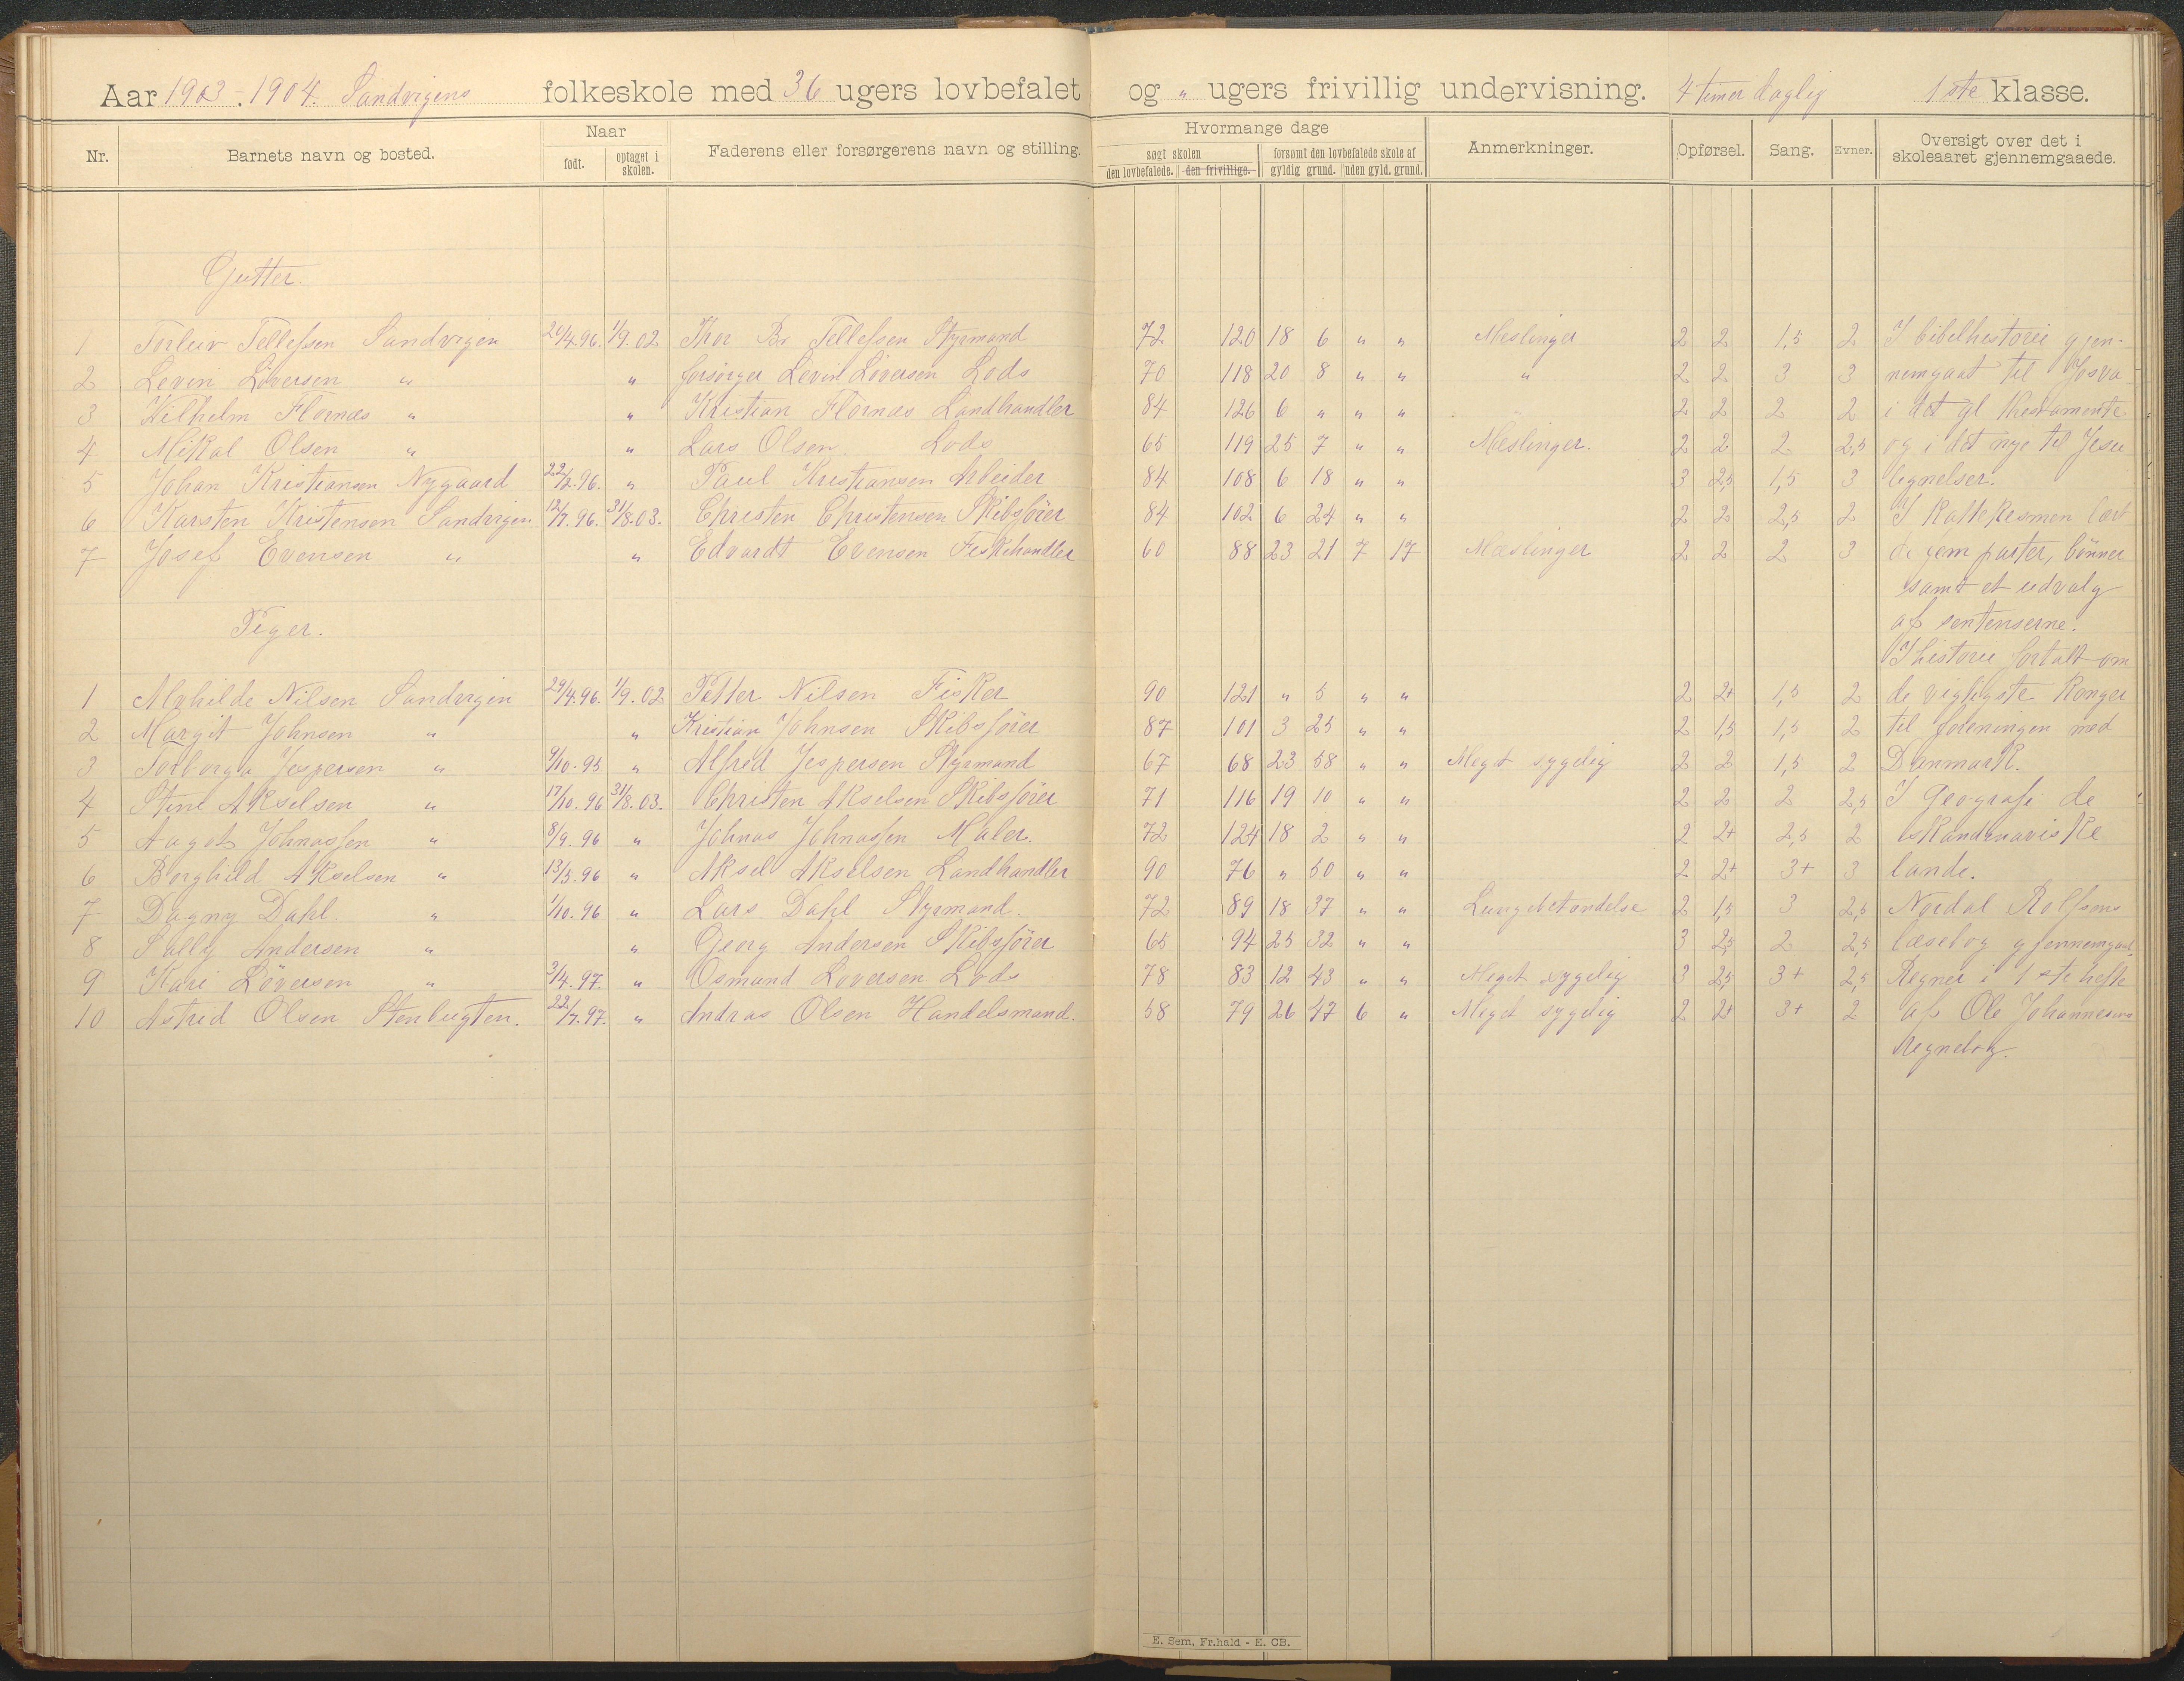 Aar 1903-1904. Sandvigens folkeskole med 36 ugers lovbefalet og " ugers frivillig undervisning. 4 timer daglig 1ste klasse.
Nr. Barnets navn og bosted. Naar født. optaget i skolen. Faderens eller forsørgerens navn og stilling. Hvormange dage søgt skolen den lovbefalede. den frivillige. forsømt den lovbefalede skole af gyldig grund. uden gyld. grund. Anmerkninger. Opførsel. Sang. Evner. Oversigt over det i skoleaaret gjennemgaaede.
Gutter.
1 Torleiv Tellefsen Sandvigen 20/4.96. 1/9.02 Thor Br Tellefsen Styrmand 72 120 18 6 " " Meslinger 2 2 1,5 2 I bibelhistorie gjen-
2 Levin Löversen " " forsørger Levin Löversen Lods 70 118 20 8 " " " 2 2 3 3 nemgaat til Josva
3 Vilhelm Flørnæs " " Kristian Flørnæs Landhandler 84 126 6 " " " 2 2 2 2 i det gl thestamente
4 Mikal Olsen " " Lars Olsen Lods 65 119 25 7 " " Meslinger. 2 2 2 2,5 og i det nye til Jesu
5 Johan Kristiansen Nygaard 22/2.96. " Paul Kristiansen Arbeider 84 108 6 18 " " 3 2,5 1,5 3 lignelser.
6 Karsten Kristensen Sandvigen 12/7.96. 31/8.03. Christen Christensen Skibsfører 84 102 6 24 " " 2 2 2,5 2 I Kattekesmen lært
7 Josef Evensen " " Edvardt Evensen Fiskehandler 60 88 23 21 7 17 Mæslinger 2 2 2 3 de fem parter, bønner
samt et udvalg
Piger. af sentenserne.
I historie fortalt om
1 Alvhilde Nilsen Sandvigen 29/4.96. 1/9.02 Petter Nilsen Fisker 90 121 " 5 " " 2 2+ 1,5 2 de vigtigste Konger
2 Margit Johnsen " " Kristian Johnsen Skibsfører 87 101 3 25 " " 2 1,5 1,5 2 til foreningen med
3 Torborga Jespersen " 9/10.95 " Alfred Jespersen Styrmand 67 68 23 58 " " Meget sygelig 2 2 1,5 2 Danmark.
4 Stine Akselsen " 17/10.96 31/8.03. Christen Akselsen Skibsfører 71 116 19 10 " " 2 2 2 2,5 I Geografi de
5 Aagot Johnassen " 8/9.96 " Johnas Johnassen Maler. 72 124 18 2 " " 2 2+ 2,5 2 skandinaviske
6 Borghild Akselsen " 13/5.96 " Aksel Akselsen Landhandler 90 76 " 50 " " 2 2+ 3+ 3 lande.
7 Dagny Dahl. " 1/10.96 " Lars Dahl Styrmand. 72 89 18 37 " " Lungebetændelse 2 1,5 3 2,5 Nordal Rolfsens
8 Sally Andersen " " Georg Andersen Skibsfører 65 94 25 32 " " 3 2,5 2 2,5 læsebog gjennemgaat
9 Kari Löversen " 3/4.97. " Osmund Loversen Lods 78 83 12 43 " " Meget sygelig 3 2,5 3+ 2,5 Regnet i 1ste hefte
10 Astrid Olsen Stenbugten. 22/7.97. " Andras Olsen Handelsmand. 58 79 26 47 6 " Meget sygelig 2 2+ 3+ 2 af Ole Johannesens
Regnebog.
E. Sem, Fr.hald - E. CB.